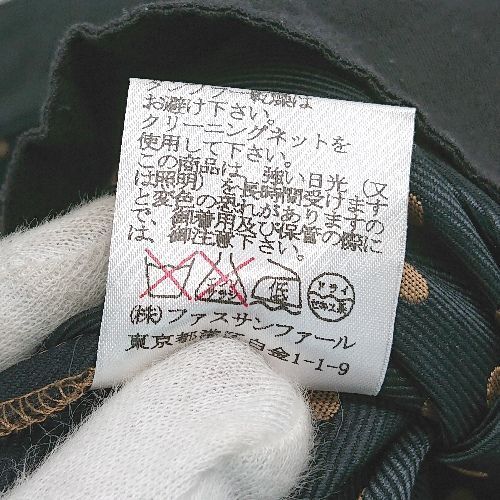 タンブラー乾燥は
お避け下さい。
クリーニングネットを
使用して下さい。
この商品は、強い日光（又
は照明）を長時間受けます
と変色の恐れがありますの
で、御着用及び保管の際に
は、御注意下さい。
低 ドライ セキユ系
(株) ファスサンファール
東京都港区白金1-1-9